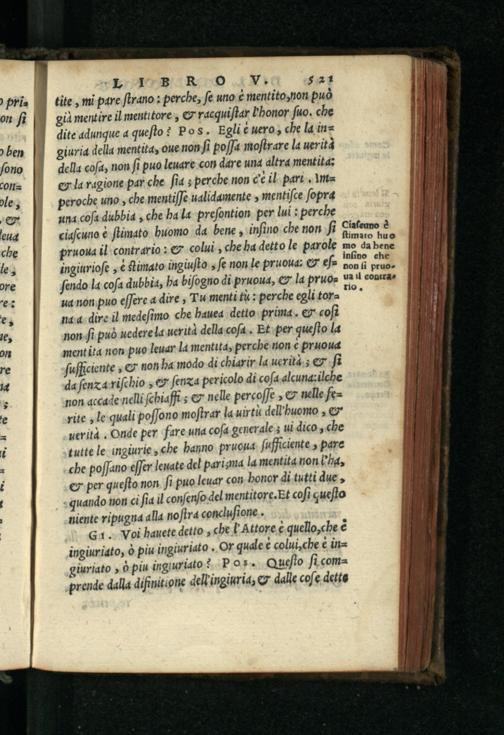 LIBRO V. 521
tite, mi pare strano: perche, se uno è mentito, non può
già mentire il mentitore, & racquistar l'honor suo. che
dite adunque a questo? Pos. Egli è uero, che la in=
giuria della mentita, oue non si possa mostrare la uerità
della cosa, non si puo leuare con dare una altra mentita:
& la ragione par che sia; perche non c'è il pari. Im=
peroche uno, che mentisse ualidamente, mentisce sopra
una cosa dubbia, che ha la presontion per lui: perche
ciascuno è stimato huomo da bene, insino che non si
pruoua il contrario: & colui, che ha detto le parole
ingiuriose, è stimato ingiusto, se non le pruoua: & es=
sendo la cosa dubbia, ha bisogno di pruoua, & la pruo=
ua non può essere a dire, Tu menti tù: perche egli tor=
na a dire il medesimo che hauea detto prima. & così
non si può uedere la uerità della cosa. Et per questo la
mentita non puo leuar la mentita, perche non è pruoua
sufficiente, & non ha modo di chiarir la uerità; & si
da senza rischio, & senza pericolo di cosa alcuna: ilche
non accade nelli schiaffi; & nelle percosse, & nelle fe=
rite, le quali possono mostrar la uirtù dell'huomo, &
uerità. Onde per fare una cosa generale; ui dico, che
tutte le ingiurie, che hanno pruoua sufficiente, pare
che possano esser leuate del pari; ma la mentita non l'ha,
& per questo non si puo leuar con honor di tutti due,
quando non ci sia il consenso del mentitore. Et così questo
niente ripugna alla nostra conclusione.
Gi. Voi hauete detto, che l'Attore è quello, che è
ingiuriato, ò piu ingiuriato. Or quale è colui, che è in=
giuriato, ò piu ingiuriato? Pos. Questo si com=
prende dalla difinitione dell'ingiuria, & dalle cose dette
Ciascuno è
stimato huo
mo da bene
insino che
non si pruo-
ua il contra-
rio.